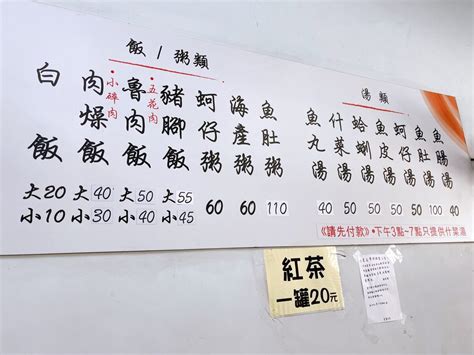 飯/粥類
白飯 大20 小10
肉燥飯 小碎肉 大40 小30
魯肉飯 五花肉 大50 小40
豬腳飯 大55 小45
蚵仔粥 60
海產粥 60
魚肚粥 110
湯類
魚丸湯 40
什菜湯 50
蛤蜊湯 50
魚皮湯 50
蚵仔湯 50
魚肚湯 100
魚腸湯 40
《請先付款》•下午3點~7點只提供什菜湯
紅茶
一罐20元